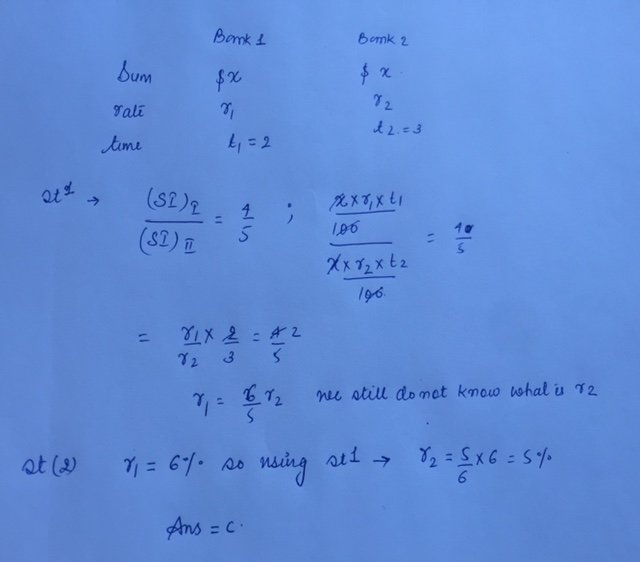 Bank 1 Bank 2
Sum $x $ x
rate r₁ r₂
time t₁ = 2 t₂ = 3
st 1 → (SI)I / (SI)II = 4/5 ; (x × r₁ × t₁ / 100) / (x × r₂ × t₂ / 100) = 4/5
= r₁/r₂ × 2/3 = 4/5 2
r₁ = 6/5 r₂ we still do not know what is r₂
st (2) r₁ = 6% so using st 1 → r₂ = 5/6 × 6 = 5%
Ans = C.